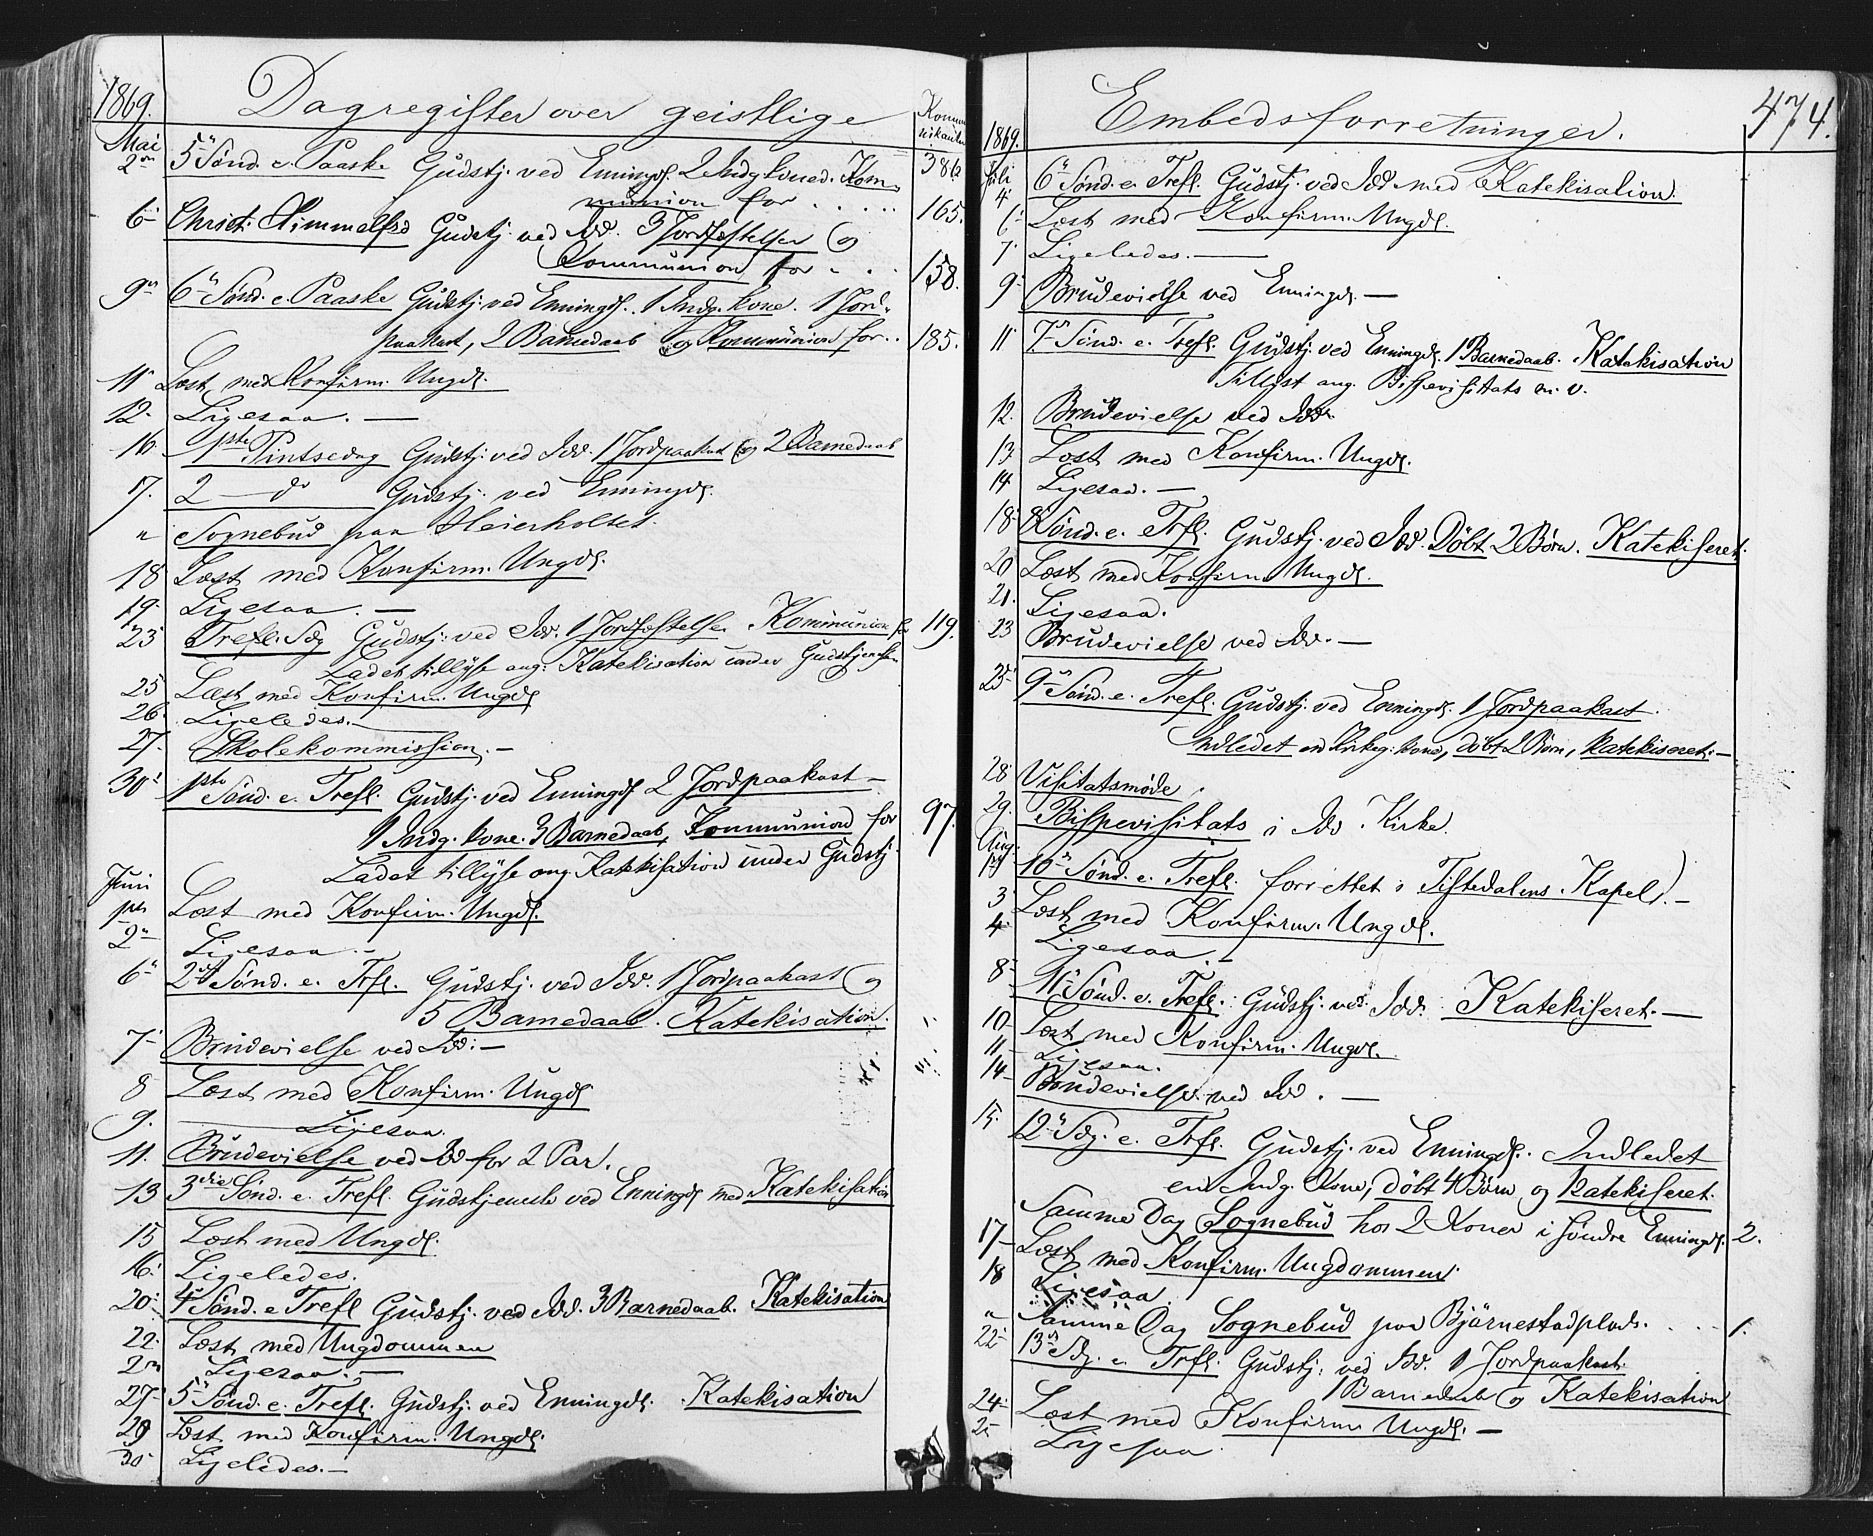 1869. Dagregister over geistlige Kommunikanter
Mai
2den 5te Sønd. e. Paaske Gudstj. ved Enningd. 2 Indg. koned. Kom- 386
munion for . . . . . 165.
6te Christi Himmelfrd Gudstj. ved Idd. 3 Jordfæstelser og
Kommunion for . . . 158.
9de 6te Sønd. e. Paaske Gudstj. ved Enningd. 1 Indg. kone. 1 Jord-
paakast, 2 Barnedaab og Kommunion for . . 185.
11 Læst med Konfirm. Ungd.
12. Ligesaa. —
16. 1ste Pintsedag Gudstj. ved Idd. 1 Jordpaakast og 2 Barnedaab
17. 2 — do Gudstj. ved Enningd.
" Sognebud paa Heierholtet.
18 Læst med Konfirm. Ungd.
19. Ligesaa. —
23 Trefl. Sdg Gudstj. ved Idd. 1 Jordfæstelse Kommunion for 119.
Ladet tillyse ang. Katekisation under Gudstjenesten
25 Læst med Konfirm. Ungd
26. Ligeledes.
27. Skolekommission. —
30te 1ste Sønd. e. Trefl. Gudstj. ved Enningd 2 Jordpaakast —
1 Indg. kone. 3 Barnedaab, Kommunion for 97.
Ladet tillyse ang. Katekisation under Gudstj.
Juni
1ste Læst med Konfirm. Ungd.
2den Ligesaa. —
6te 2den Sønd. e. Trfl. Gudstj. ved Idd. 1 Jordpaakast og
5 Barnedaab. Katekisation.
7de Brudevielse ved Idd. —
8 Læst med Konfirm. Ungd
9. Ligesaa.
11. Brudevielse ved Idd for 2 Par.
13 3die Sønd. e. Trefl. Gudstjeneste ved Enningd med Katekisation
15 Læst med Ungd.
16. Ligeledes.
20. 4de Sønd. e Trefl Gudstj. ved Idd. 3 Barnedaab. Katekisation
22. Læst med Ungdommen
Ligesaa. —
27. 5te Sønd. e. Trefl. Gudstj. ved Enningd. Katekisation
29 Læst med Konfirm. Ungd.
30 Ligeledes. —
1869. Embedsforretninger. 474.
Juli
4 6te Sønd. e. Trefl. Gudstj. ved Idd med Katekisation.
6 Læst med Konfirm. Ungd.
7. Ligeledes. —
9 Brudevielse ved Enningd. —
11 7de Sønd. e. Trefl. Gudstj. ved Enningd. 1 Barnedaab. Katekisation
Tillyst ang. Bispevisitats m. v.
12. Brudevielse ved Idd
13 Læst med Konfirm. Ungd.
14 Ligesaa. —
18 8 Sønd. e. Trfl. Gudstj. ved Idd. Døbt 2 Børn. Katekiseret.
20 Læst med Konfirm Ungd.
21. Ligesaa.
23 Brudevielse ved Idd. —
25 9de Sønd. e. Trefl. Gudstj. ved Enningd. 1 Jordpaakast.
Indledet en Kirkeg. kone, døbt 2 Børn, katekiseret. —
28 Visitatsmøde.
29. Bispevisitats i Idd Kirke.
Aug.
1st 10de Sønd. e. Trefl. forrettet i Tistedalens Kapel). —
3 Læst med Konfirm. Ungd.
4 Ligesaa. —
8 11te Sønd. e. Trefl. Gudstj. ved Idd. Katekiseret. —
10 Læst med Konfirm. Ungd.
11 Ligesaa.
14 Brudevielse ved Idd. —
15. 12te Sdg. e. Trfl. Gudstj. ved Enningd. Indledet
en Indg. Kone, døbt 4 Børn og Katekiseret.
Samme Dag Sognebud hos 2 Koner i søndre Enningd. 2.
17 Læst med Konfirm. Ungdommen
18 Ligesaa.
" Samme Dag Sognebud paa Bjørnestadplads. . . . 1.
22 13de Sdg. e. Trfl. Gudstj. ved Idd. 1 Jordpaakast.
1 Barnedaab og Katekisation
24 Læst med Konfirm Ungd. —
25 Ligesaa.